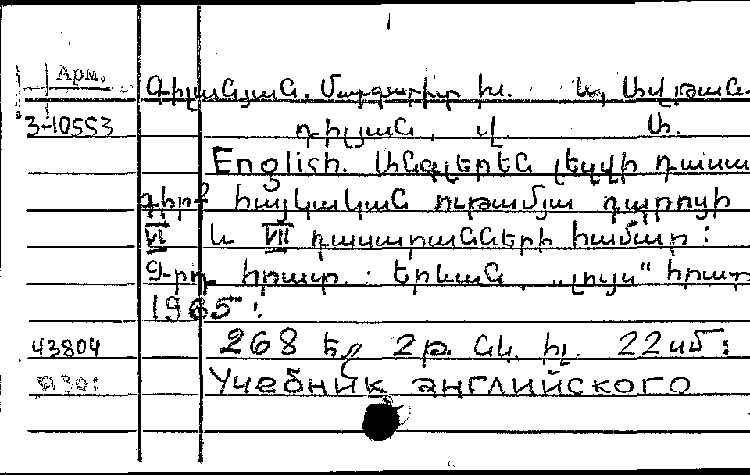 Арм.
Գիլանյան, Մարգարիտ Խ. և Ավթան-
3-10553 դիլյան, Վ. Ա.
English. Անգլերեն լեզվի դասա
գիրք հայկական ութամյա դպրոցի
VI և VII դասարանների համար։
9-րդ հրատ. : Երևան, „Լույս" հրատ
1965։
43804 268 էջ 2թ. նկ. իլ. 22սմ։
Учебник английского